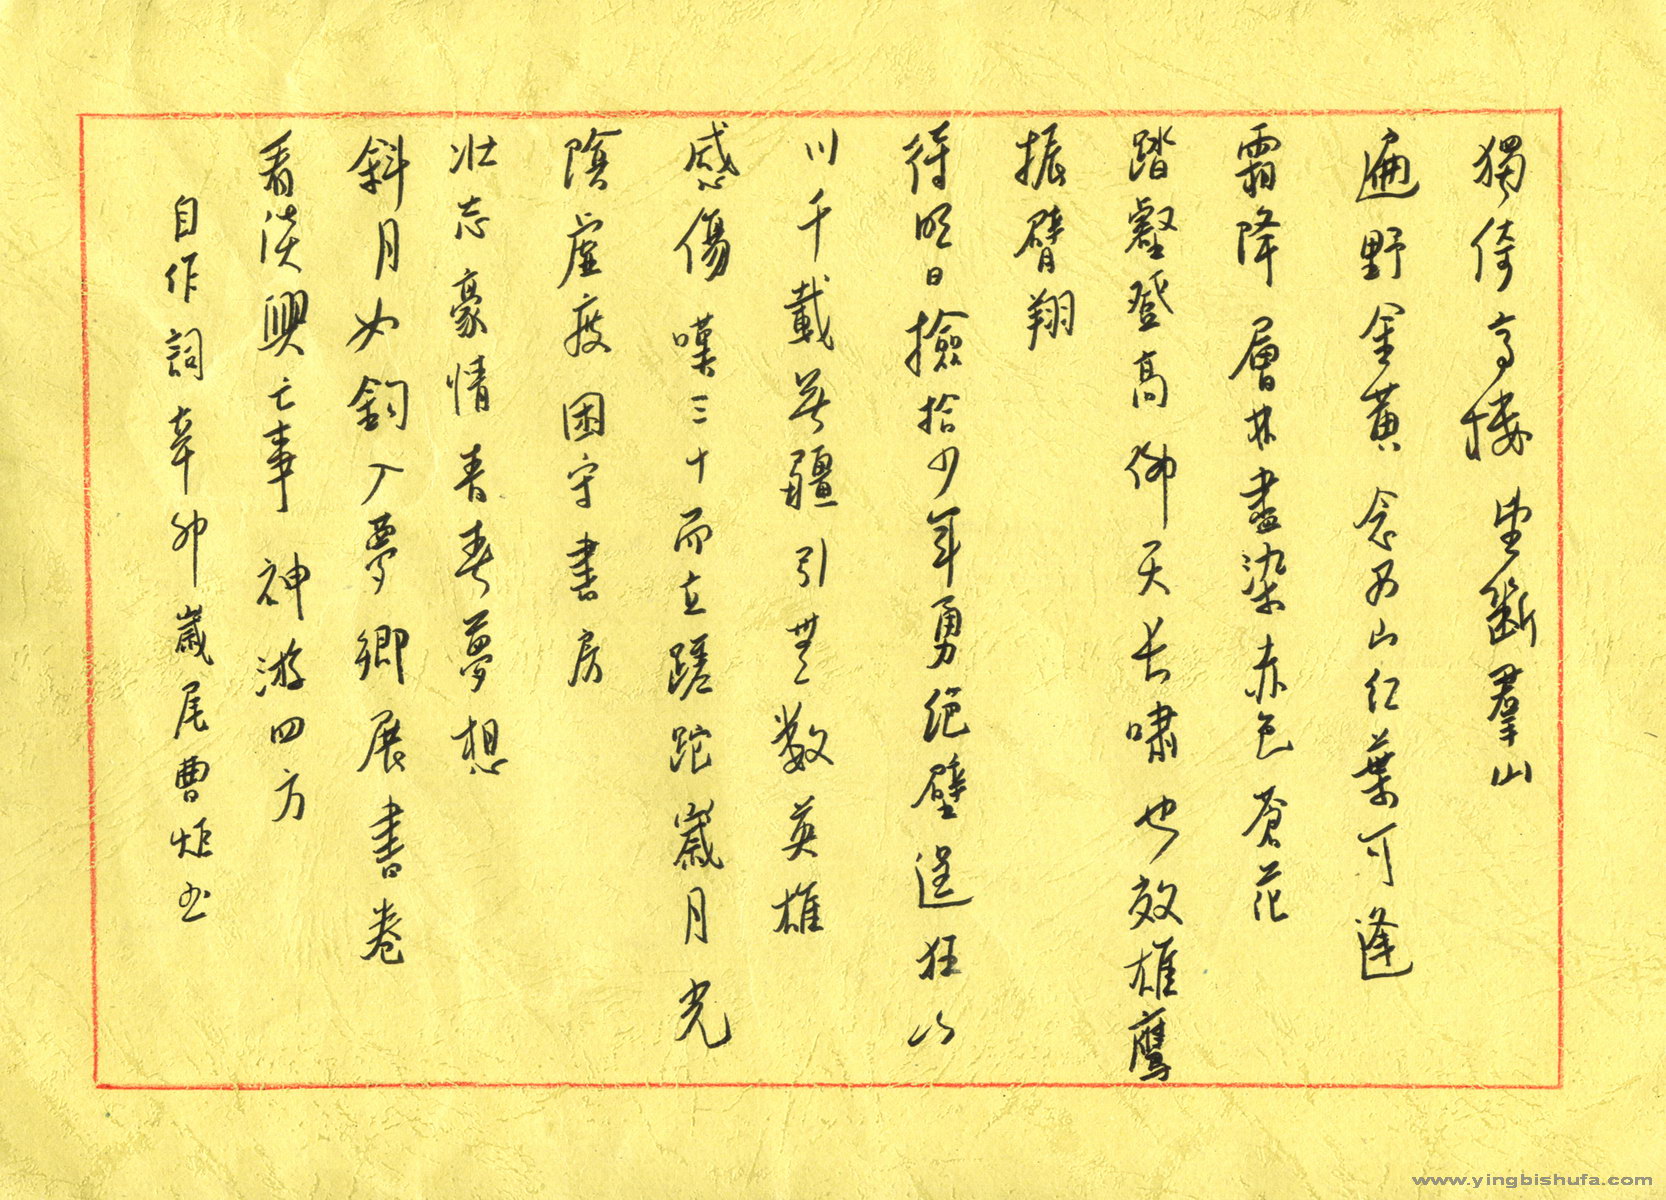 獨倚高樓 望斷羣山
遍野金黃 念西山红葉可逢
霜降 層林盡染赤色蒼茫
踏壑登高 仰天长嘯 也效雄鷹
振臂翔
待明日撿拾少年勇 絕壁逞狂 山
川千載無疆 引無数英雄
感傷 嘆三十而立蹉跎歲月光
陰虛度 困守書房
壯志豪情青春夢想
斜月如鈎入夢鄉 展書卷
看淡興亡事 神游四方
自作詞辛卯歲尾曹炬书
www.yingbishufa.com